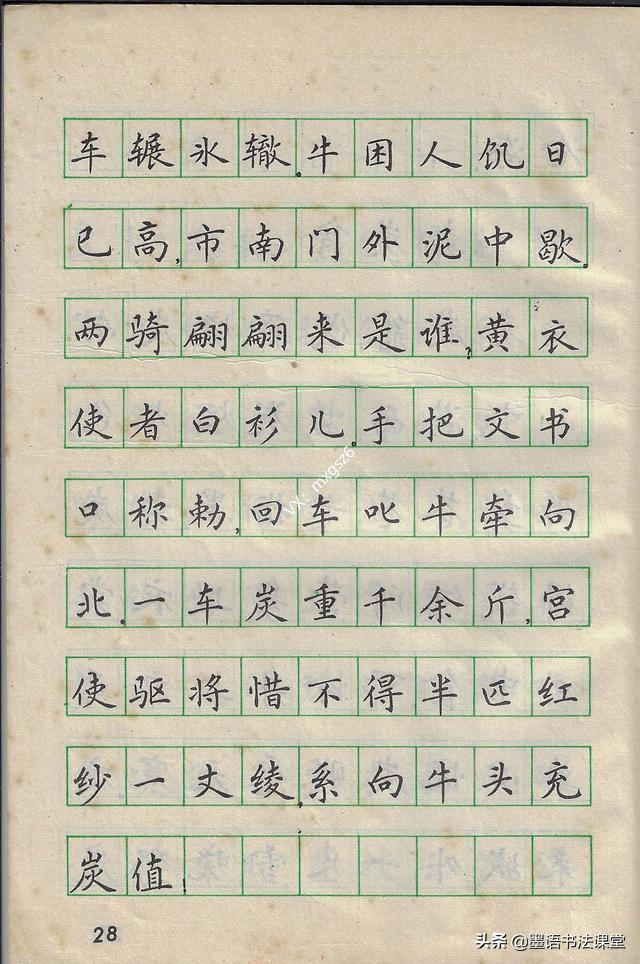 车辗氷辙.牛困人饥日
已高,市南门外泥中歇.
两骑翩翩来是谁?黄衣
使者白衫儿.手把文书
口称勅,回车叱牛牵向
北.一车炭重千余斤,宫
使驱将惜不得半匹红
纱一丈绫,系向牛头充
炭值!
28
VX：mxgsz6
头条 @墨语书法课堂